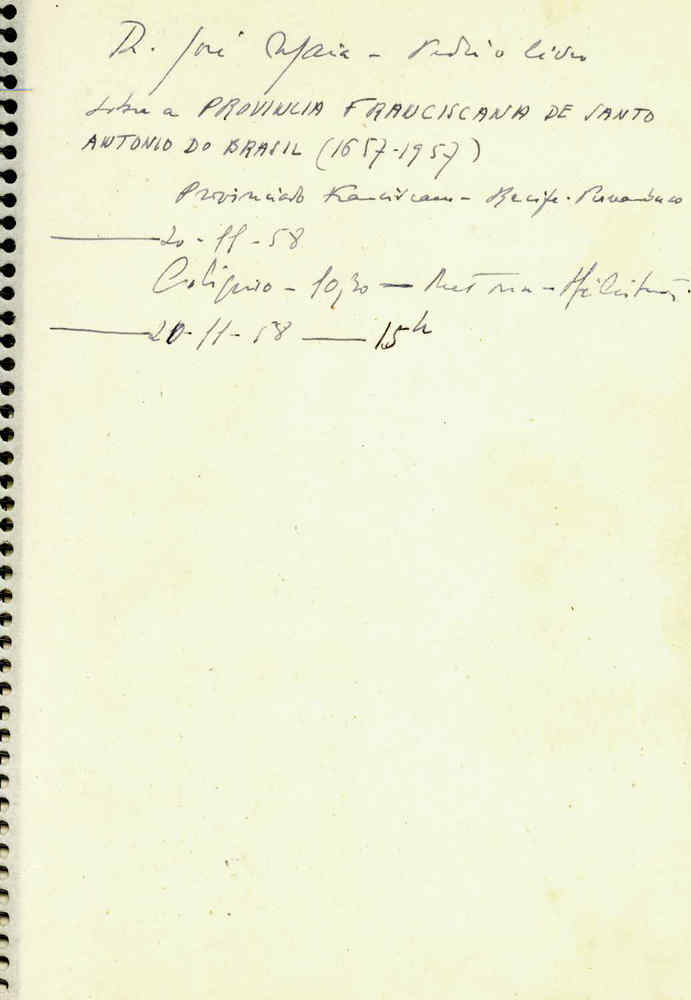 Dr. José Maia - Pedir o livro
sobre a PROVINCIA FRANCISCANA DE SANTO
ANTONIO DO BRASIL (1657-1957)
Provinciado Franciscano - Recife. Pernambuco
20-11-58
10,30 —
20-11-58 — 15h